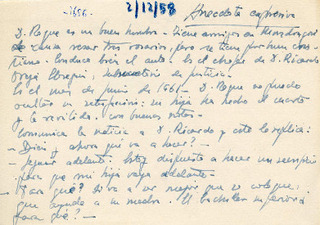 -1656-
2/12/58
Anecdota expresiva
D. Roque es un buen hombre - tiene amigos en Mondragón
reza tres rosarios, pero se tiene por buen cris-
tiano. Conduce bien el auto. Es el chofer de D. Ricardo
Oreja Elosegui, subsecretario de justicia.
Es el mes de junio de 1951- D. Roque no puede
ocultar su satisfacción: su hijo ha hecho el cuarto
y la revalida, con buenas notas.
Comunica la noticia a D. Ricardo y este le replica:
- Dices y ahora qué va a hacer? -
- seguir adelante: Estoy dispuesto a hacer un sacrificio
para que mi hijo vaya adelante -
- Para qué? si va a ser mejor que se coloque,
que ayude a su madre. El bachiller inferior
para qué? -